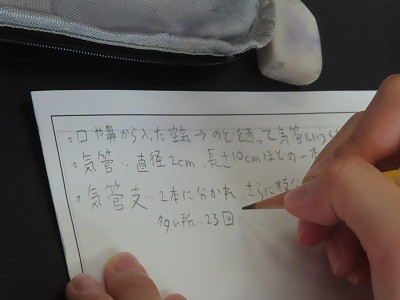 。口や鼻から入った空気→のどを通って気管という
。気管…直径2cm、長さ10cmほどの一本
。気管支…2本に分かれ、さらに枝分
多い所…23回